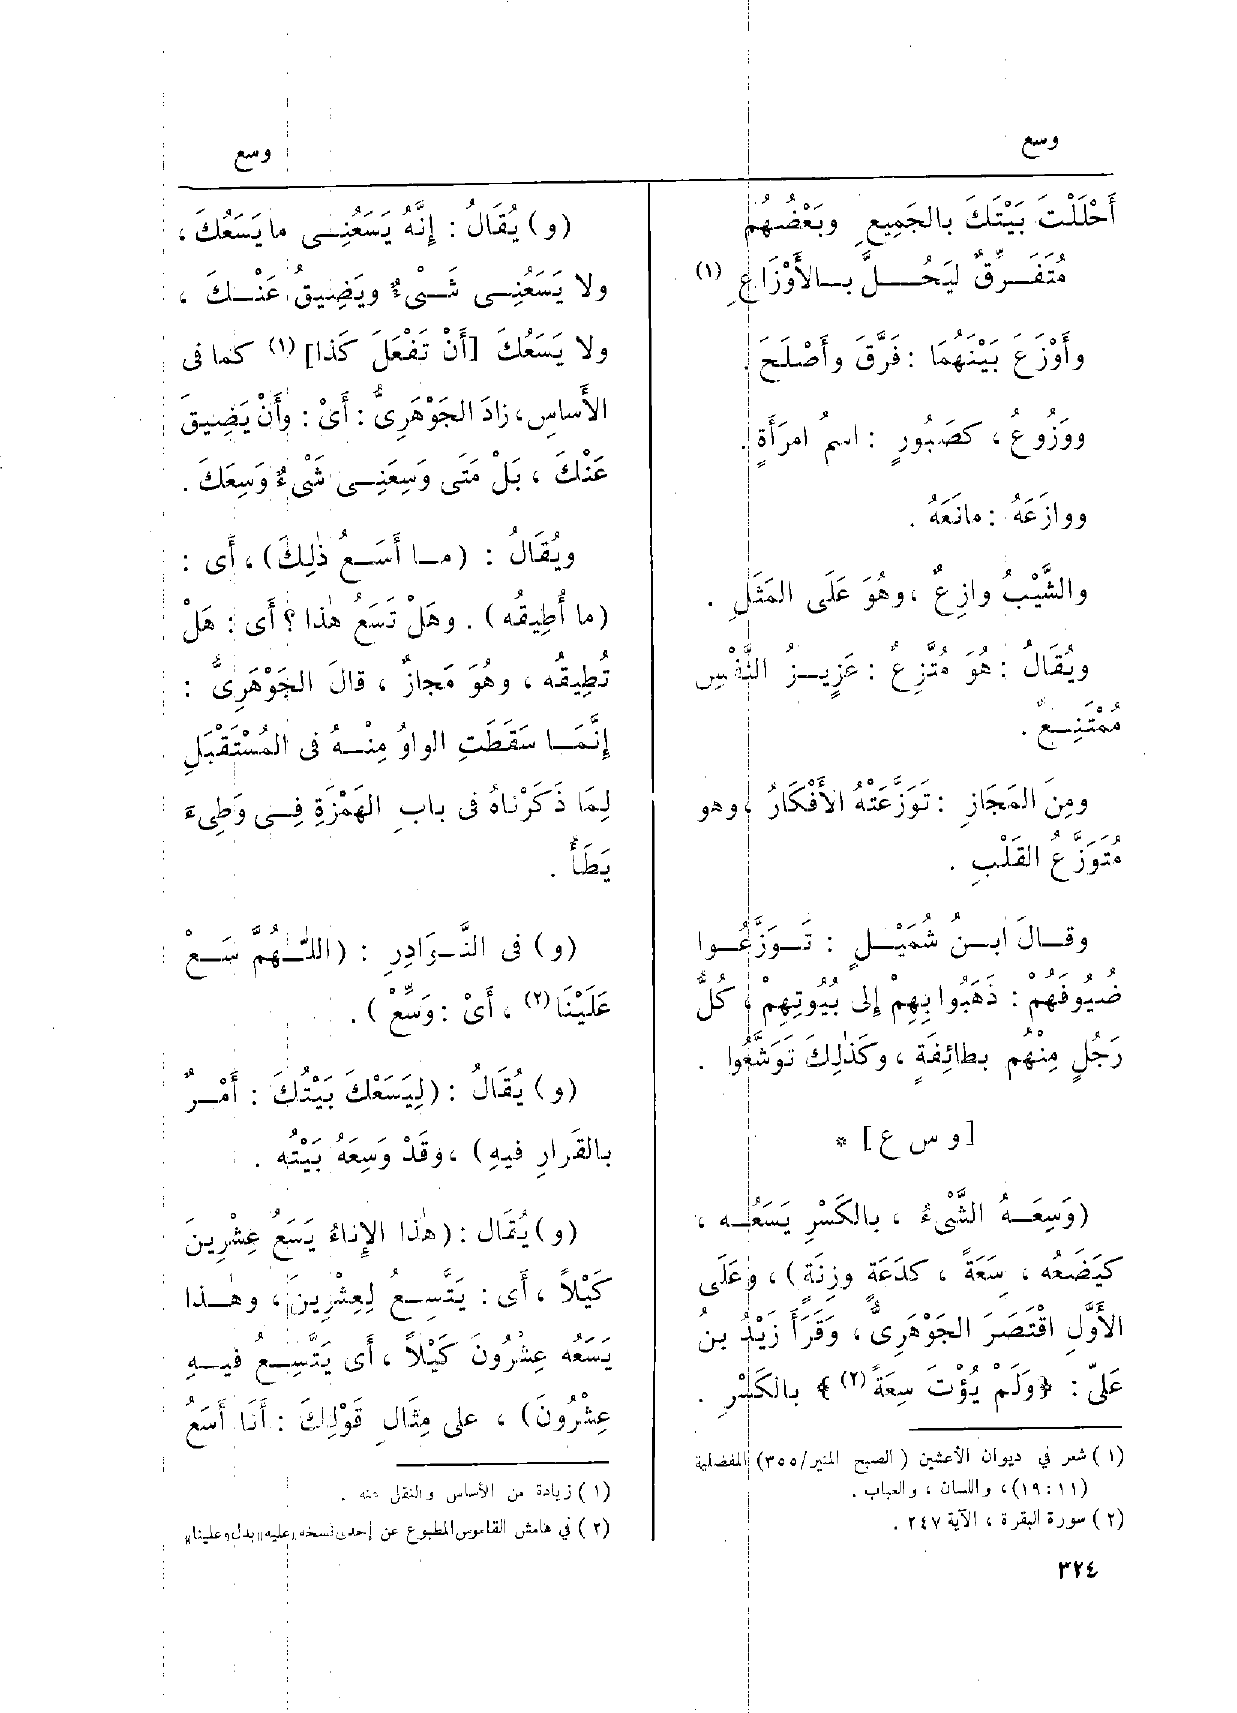 وسع
وسع
أَحْلَلْتَ بَيْتَكَ بالجَمِيعِ وبَعْضُهُم
مُتَفَـرِّقٌ لِيَحُـلَّ بـالأَوْزَاعِ (١)
وأَوْزَعَ بَيْنَهُمَا : فَرَّقَ وأَصْلَحَ .
ووَزُوعُ ، كصَبُورٍ : اسمُ امرَأَةٍ .
ووازَعَهُ : مانَعَهُ .
والشَّيْبُ وازِعٌ ، وهُوَ عَلَى المَثَلِ .
ويُقَالُ : هُوَ مُتَّزِعٌ : عَزِيـزُ النَّفْسِ
مُمْتَنِـعٌ .
ومِنَ المَجَازِ : تَوَزَّعَتْهُ الأَفْكَارُ ، وهو
مُتَوَزَّعُ القَلْبِ .
وقـالَ ابـنُ شُمَيْـلٍ : تَـوَزَّعُـوا
ضُيُوفَهُمْ : ذَهَبُوا بِهِمْ إِلى بُيُوتِهِمْ ، كُلُّ
رَجُلٍ مِنْهُم بطائِفَةٍ ، وكَذٰلِكَ تَوَشَّعُوا .
[ و س ع ] *
(وَسِعَـهُ الشَّيْءُ ، بالكَسْرِ يَسَعُـه ،
كيَضَعُه ، سَعَةً ، كدَعَةٍ وزِنَةٍ) ، وعَلَى
الأَوَّلِ اقْتَصَرَ الجَوْهَرِىُّ ، وقَرَأَ زَيْدُ بنُ
عَلىّ : ﴿ولَمْ يُؤْتَ سِعَةً (٢)﴾ بالكَسْرِ .
(١) شعر في ديوان الأعشين ( الصبح المنير/٣٥٥) المفضلية
(١١ : ١٩) ، واللسان ، والعباب .
(٢) سورة البقرة ، الآية ٢٤٧ .
٣٢٤
(و) يُقَالُ : إِنَّهُ يَسَعُنِـى ما يَسَعُكَ ،
ولا يَسَعُنِـى شَـىْءٌ ويَضِيقُ عَنْـكَ ،
ولا يَسَعُكَ [أَنْ تَفْعَلَ كَذا] (١) كما فى
الأَساسِ ، زادَ الجَوْهَرِىُّ : أَىْ : وأَنْ يَضِيقَ
عَنْكَ ، بَلْ مَتَى وَسِعَنِـى شَىْءٌ وَسِعَكَ .
ويُقَالُ : (مـا أَسَـعُ ذٰلِكَ) ، أَى :
(ما أُطِيقُه) . وهَلْ تَسَعُ هٰذا ؟ أَى : هَلْ
تُطِيقُه ، وهُوَ مَجازٌ ، قالَ الجَوْهَرِىُّ :
إِنَّمَـا سَقَطَتِ الواوُ مِنْـهُ فى المُسْتَقْبَلِ
لِمَا ذَكَرْناهُ فى بابِ الهَمْزَةِ فِـى وَطِىءَ
يَطَأُ .
(و) فى النَّـوَادِرِ : (اللّٰـهُمَّ سَـعْ
عَلَيْنَا (٢) ، أَىْ : وَسِّعْ ) .
(و) يُقَالُ : (لِيَسَعْكَ بَيْتُكَ : أَمْـرٌ
بالقَرارِ فيهِ) ، وقَدْ وَسِعَهُ بَيْتُه .
(و) يُقَال : (هٰذا الإِناءُ يَسَعُ عِشْرِينَ
كَيْلاً ، أَى : يَتَّسِـعُ لِعِشْرِينَ ، وهـٰذا
يَسَعُه عِشْرُونَ كَيْلاً ، أَى يَتَّسِـعُ فيـهِ
عِشْرُونَ) ، على مِثَالِ قَوْلِكَ : أَنَا أَسَعُ
(١) زيادة من الأساس والنقل منه .
(٢) في هامش القاموس المطبوع عن إحدى نسخه «عليه» بدل «علينا»